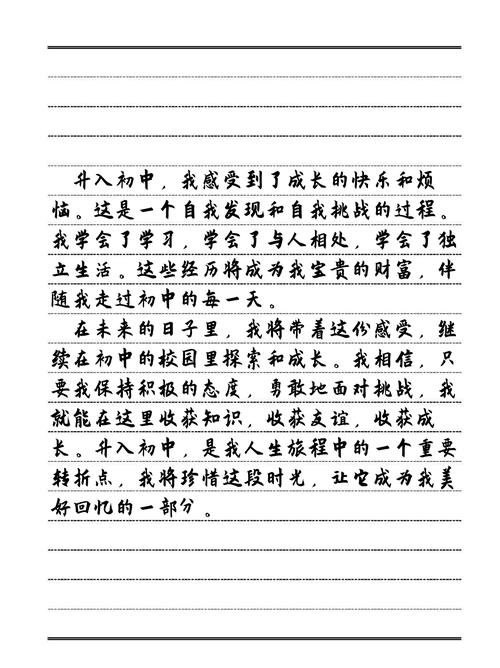 升入初中，我感受到了成长的快乐和烦
恼。这是一个自我发现和自我挑战的过程。
我学会了学习，学会了与人相处，学会了独
立生活。这些经历将成为我宝贵的财富，伴
随我走过初中的每一天。
在未来的日子里，我将带着这份感受，继
续在初中的校园里探索和成长。我相信，只
要我保持积极的态度，勇敢地面对挑战，我
就能在这里收获知识，收获友谊，收获成
长。升入初中，是我人生旅程中的一个重要
转折点，我将珍惜这段时光，让它成为我美
好回忆的一部分。